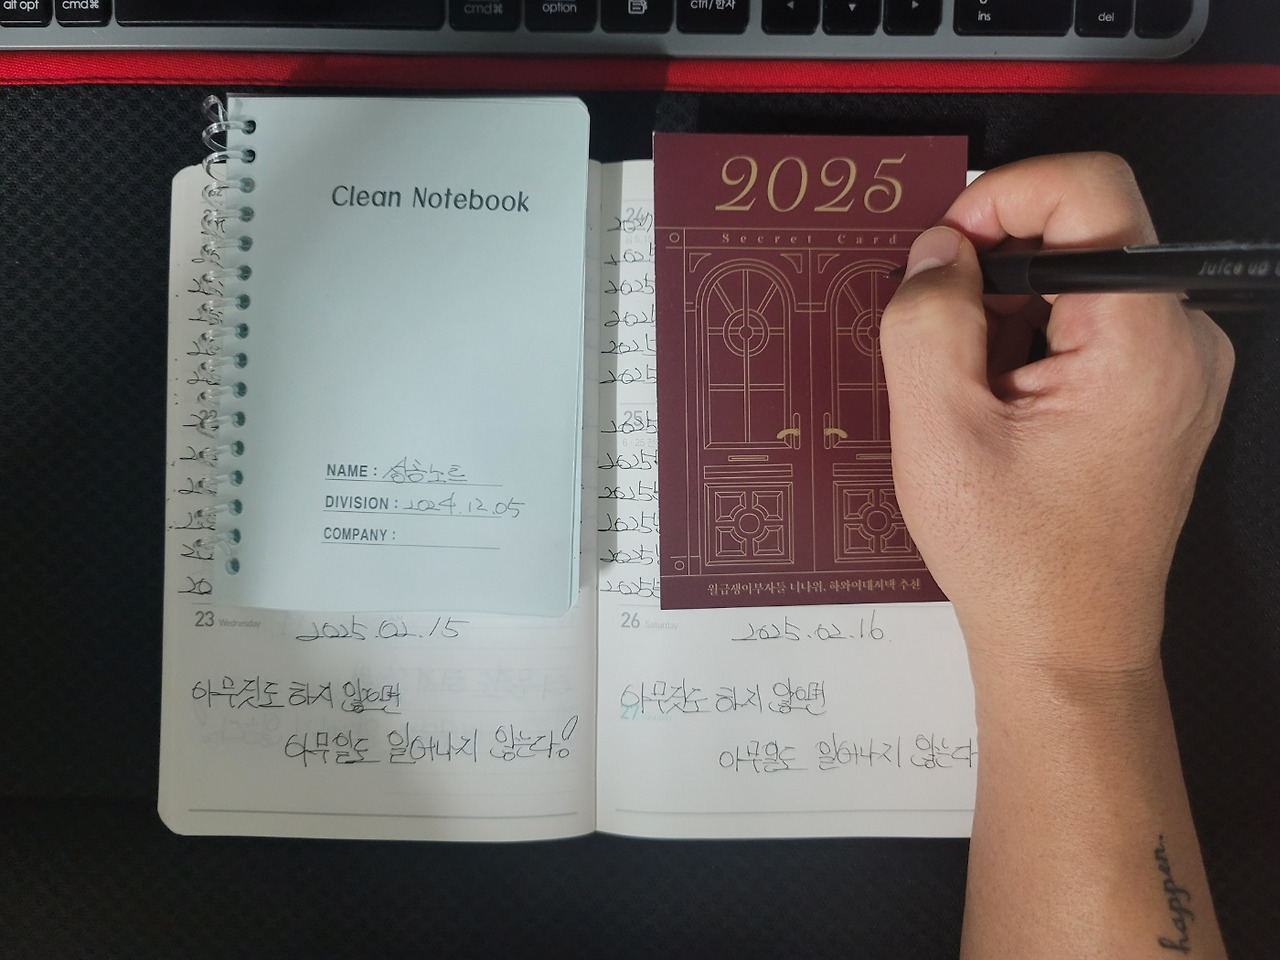 alt opt
cmd⌘
cmd⌘
option
ctrl / 한자
ins
del
Clean Notebook
NAME : 성공노트
DIVISION : 2024.12.05
COMPANY :
2025
Secret Card
월급쟁이부자들 너나위, 하와이대저택 추천
Juice up
24
2025
2025
2025
2025
2025
25
2025
2025
2025
2025
2025
2025
20
23 Wednesday
2025.02.15
아무것도 하지 않으면
아무일도 일어나지 않는다!
26 Saturday
2025.02.16
아무것도 하지 않으면
27
아무일도 일어나지 않는다
happen..